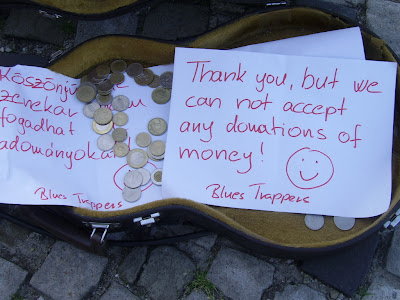 Köszönjük
zenekar
fogadhat
adományokat
Blues Trappers
Thank you, but we
can not accept
any donations of
money!
Blues Trappers